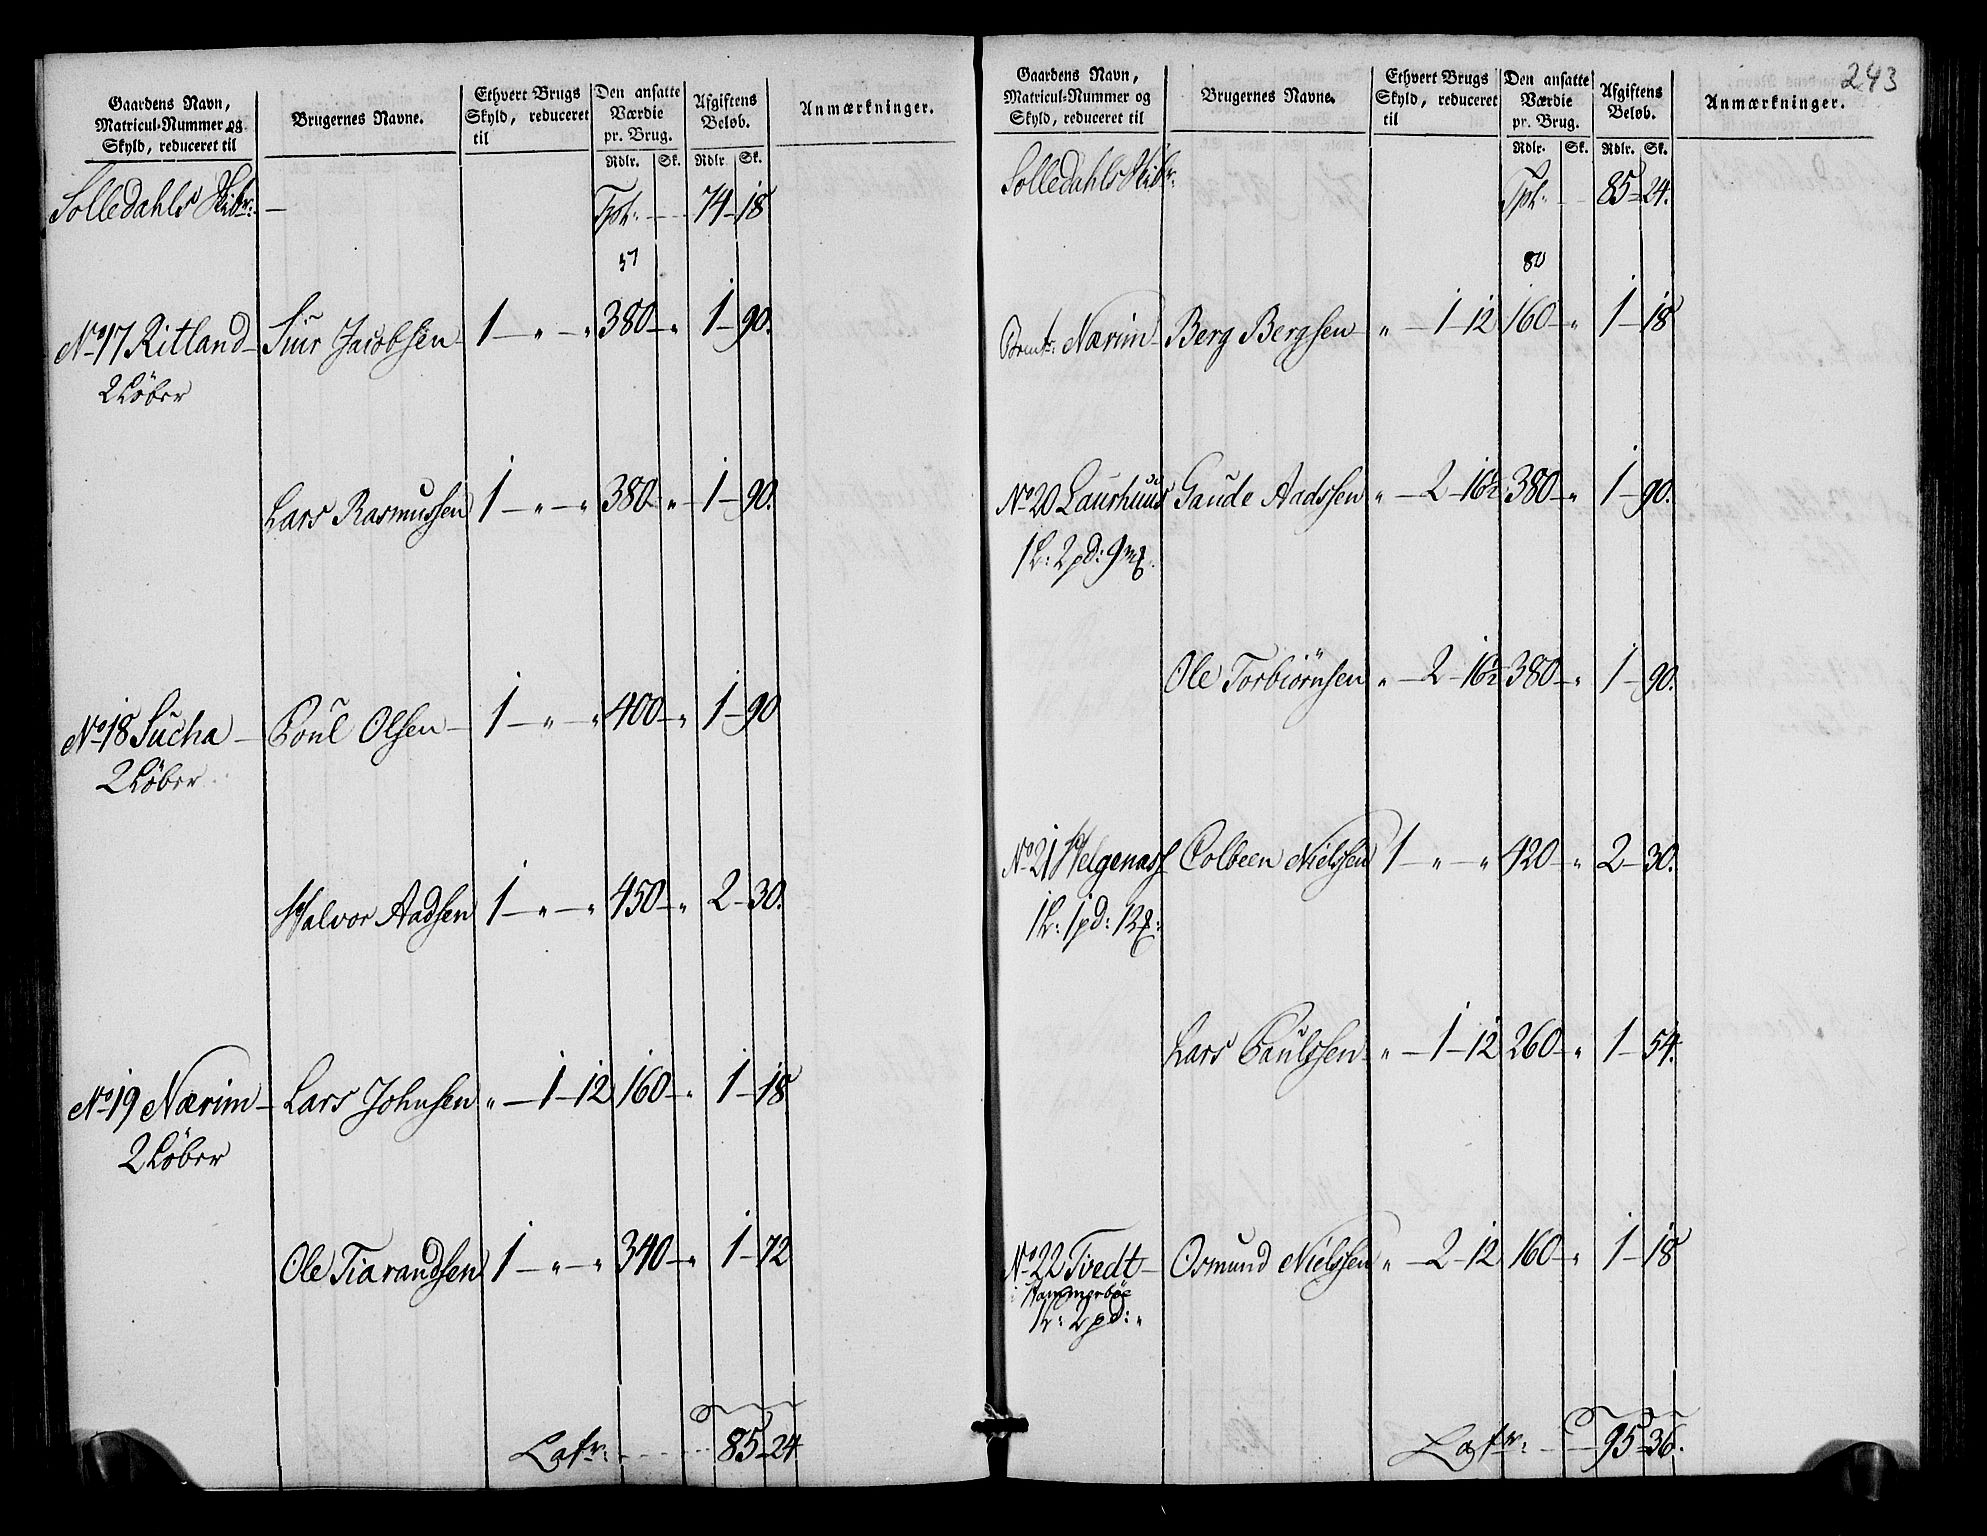 Gaardens Navn, Matricul-Nummer og Skyld, reduceret til | Brugernes Navne. | Ethvert Brugs Skyld, reduceret til | Den ansatte Værdie pr. Brug. | Afgiftens Beløb. | Anmærkninger.
Rdlr. | Sk. | Rdlr. | Sk.
Solledahls Skibr: — Tpt: 74 — 18
57
No 17 Ritland — Siur Jacobsen 1 — „ — „ 380 — „ 1 — 90.
2 Løber
Lars Rasmussen 1 — „ — „ 380 — „ 1 — 90.
No 18 Sucha — Poul Olsen — 1 — „ — „ 400 — „ 1 — 90
2 Løber
Halvor Aadsen 1 — „ — „ 450 — „ 2 — 30.
No 19 Nærim — Lars Johnsen „ — 1 — 12 160 — „ 1 — 18
2 Løber
Ole Tiarandsen 1 — „ — „ 340 — „ 1 — 72
Latr: 85 — 24
243
Gaardens Navn, Matricul-Nummer og Skyld, reduceret til | Brugernes Navne. | Ethvert Brugs Skyld, reduceret til | Den ansatte Værdie pr. Brug. | Afgiftens Beløb. | Anmærkninger.
Rdlr. | Sk. | Rdlr. | Sk.
Solledahls Skibr: Tpt: 85 — 24.
80
Nærim — Berg Bergsen — „ — 1 — 12 160 — „ 1 — 18
No 20 Laurhuus Gaude Aadssen „ — 2 — 16½ 380 — „ 1 — 90.
1 L: 2 pd: 9 mk.
Ole Torbiørnsen „ — 2 — 16½ 380 — „ 1 — 90.
No 21 Helgenass Colbeen Nielssen 1 — „ — „ 420 — „ 2 — 30.
1 L: 1 pd: 12
Lars Paulssen — „ — 1 — 12 260 — „ 1 — 54.
No 22 Tvedt — Osmund Nielssen „ — 2 — 12 160 — „ 1 — 18
i Hammerbøe
1 L: 2 pd: „
Latr: 95 — 36.